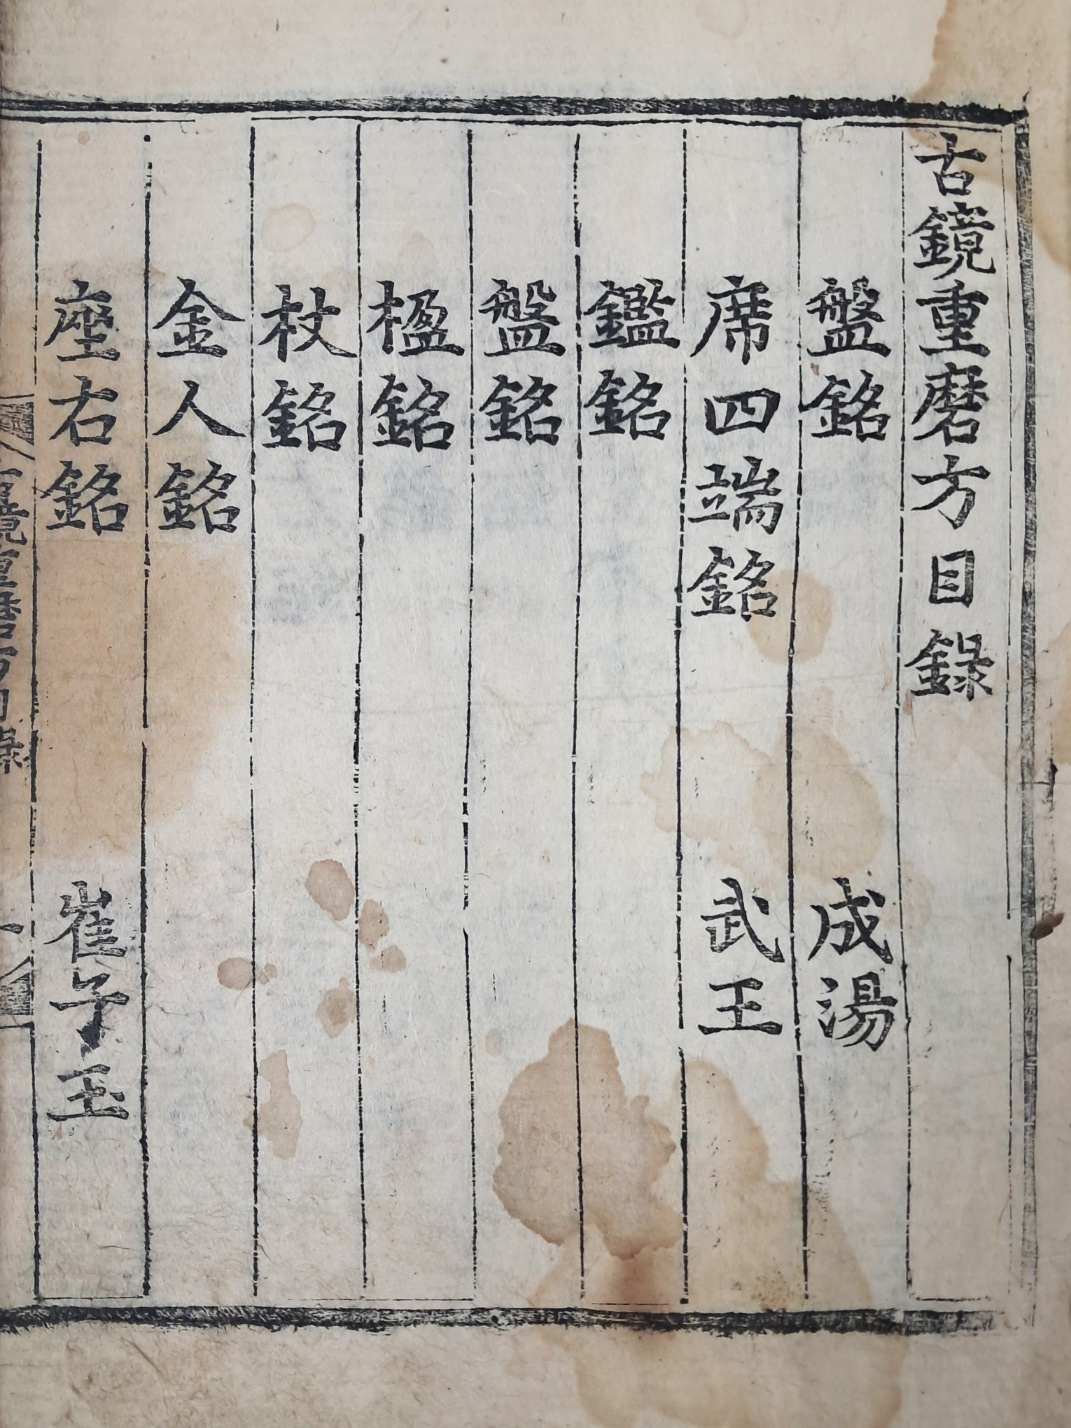 古鏡重磨方目錄
盤銘 成湯
席四端銘 武王
鑑銘
盤銘
楹銘
杖銘
金人銘
座右銘 崔子玉
古鏡重磨方目錄 一